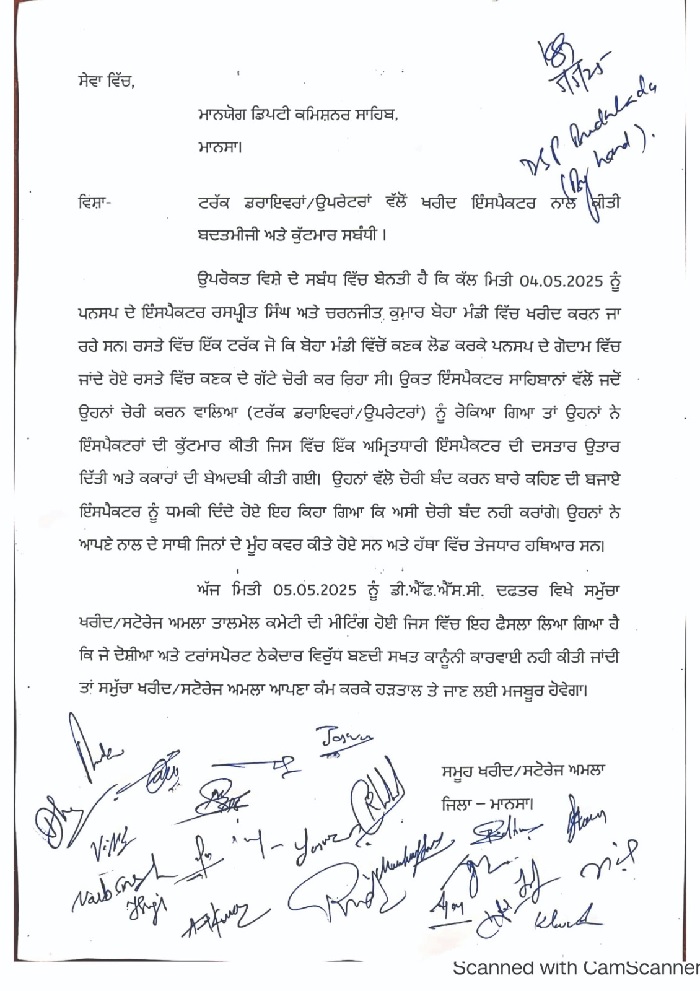 5/5/25
DSP Budhlada
(By hand).
ਸੇਵਾ ਵਿੱਚ,
ਮਾਨਯੋਗ ਡਿਪਟੀ ਕਮਿਸ਼ਨਰ ਸਾਹਿਬ,
ਮਾਨਸਾ।
ਵਿਸ਼ਾ- ਟਰੱਕ ਡਰਾਇਵਰਾਂ/ਉਪਰੇਟਰਾਂ ਵੱਲੋਂ ਖਰੀਦ ਇੰਸਪੈਕਟਰ ਨਾਲ ਕੀਤੀ
ਬਦਤਮੀਜੀ ਅਤੇ ਕੁੱਟਮਾਰ ਸਬੰਧੀ ।
ਉਪਰੋਕਤ ਵਿਸ਼ੇ ਦੇ ਸਬੰਧ ਵਿੱਚ ਬੇਨਤੀ ਹੈ ਕਿ ਕੱਲ ਮਿਤੀ 04.05.2025 ਨੂੰ
ਪਨਸਪ ਦੇ ਇੰਸਪੈਕਟਰ ਰਸਪ੍ਰੀਤ ਸਿੰਘ ਅਤੇ ਚਰਨਜੀਤ ਕੁਮਾਰ ਬੋਹਾ ਮੰਡੀ ਵਿੱਚ ਖਰੀਦ ਕਰਨ ਜਾ
ਰਹੇ ਸਨ। ਰਸਤੇ ਵਿੱਚ ਇੱਕ ਟਰੱਕ ਜੋ ਕਿ ਬੋਹਾ ਮੰਡੀ ਵਿੱਚੋਂ ਕਣਕ ਲੋਡ ਕਰਕੇ ਪਨਸਪ ਦੇ ਗੋਦਾਮ ਵਿੱਚ
ਜਾਂਦੇ ਹੋਏ ਰਸਤੇ ਵਿੱਚ ਕਣਕ ਦੇ ਗੱਟੇ ਚੋਰੀ ਕਰ ਰਿਹਾ ਸੀ। ਉਕਤ ਇੰਸਪੈਕਟਰ ਸਾਹਿਬਾਨਾਂ ਵੱਲੋਂ ਜਦੋਂ
ਉਹਨਾਂ ਚੋਰੀ ਕਰਨ ਵਾਲਿਆ (ਟਰੱਕ ਡਰਾਇਵਰਾਂ/ਉਪਰੇਟਰਾਂ) ਨੂੰ ਰੋਕਿਆ ਗਿਆ ਤਾਂ ਉਹਨਾਂ ਨੇ
ਇੰਸਪੈਕਟਰਾਂ ਦੀ ਕੁੱਟਮਾਰ ਕੀਤੀ ਜਿਸ ਵਿੱਚ ਇੱਕ ਅਮ੍ਰਿਤਧਾਰੀ ਇੰਸਪੈਕਟਰ ਦੀ ਦਸਤਾਰ ਉਤਾਰ
ਦਿੱਤੀ ਅਤੇ ਕਕਾਰਾਂ ਦੀ ਬੇਅਦਬੀ ਕੀਤੀ ਗਈ। ਉਹਨਾਂ ਵੱਲੋ ਚੋਰੀ ਬੰਦ ਕਰਨ ਬਾਰੇ ਕਹਿਣ ਦੀ ਬਜਾਏ
ਇੰਸਪੈਕਟਰ ਨੂੰ ਧਮਕੀ ਦਿੰਦੇ ਹੋਏ ਇਹ ਕਿਹਾ ਗਿਆ ਕਿ ਅਸੀ ਚੋਰੀ ਬੰਦ ਨਹੀ ਕਰਾਂਗੇ। ਉਹਨਾਂ ਨੇ
ਆਪਣੇ ਨਾਲ ਦੇ ਸਾਥੀ ਜਿਨਾਂ ਦੇ ਮੂੰਹ ਕਵਰ ਕੀਤੇ ਹੋਏ ਸਨ ਅਤੇ ਹੱਥਾ ਵਿੱਚ ਤੇਜਧਾਰ ਹਥਿਆਰ ਸਨ।
ਅੱਜ ਮਿਤੀ 05.05.2025 ਨੂੰ ਡੀ.ਐੱਫ.ਐੱਸ.ਸੀ. ਦਫਤਰ ਵਿਖੇ ਸਮੁੱਚਾ
ਖਰੀਦ/ਸਟੋਰੇਜ ਅਮਲਾ ਤਾਲਮੇਲ ਕਮੇਟੀ ਦੀ ਮੀਟਿੰਗ ਹੋਈ ਜਿਸ ਵਿੱਚ ਇਹ ਫੈਸਲਾ ਲਿਆ ਗਿਆ ਹੈ
ਕਿ ਜੇ ਦੋਸ਼ੀਆ ਅਤੇ ਟਰਾਂਸਪੋਰਟ ਠੇਕੇਦਾਰ ਵਿਰੁੱਧ ਬਣਦੀ ਸਖਤ ਕਾਨੂੰਨੀ ਕਾਰਵਾਈ ਨਹੀ ਕੀਤੀ ਜਾਂਦੀ
ਤਾਂ ਸਮੁੱਚਾ ਖਰੀਦ/ਸਟੋਰੇਜ ਅਮਲਾ ਆਪਣਾ ਕੰਮ ਕਰਕੇ ਹੜਤਾਲ ਤੇ ਜਾਣ ਲਈ ਮਜਬੂਰ ਹੋਵੇਗਾ।
ਸਮੂਹ ਖਰੀਦ/ਸਟੋਰੇਜ ਅਮਲਾ
ਜਿਲਾ – ਮਾਨਸਾ।
Scanned with CamScanner